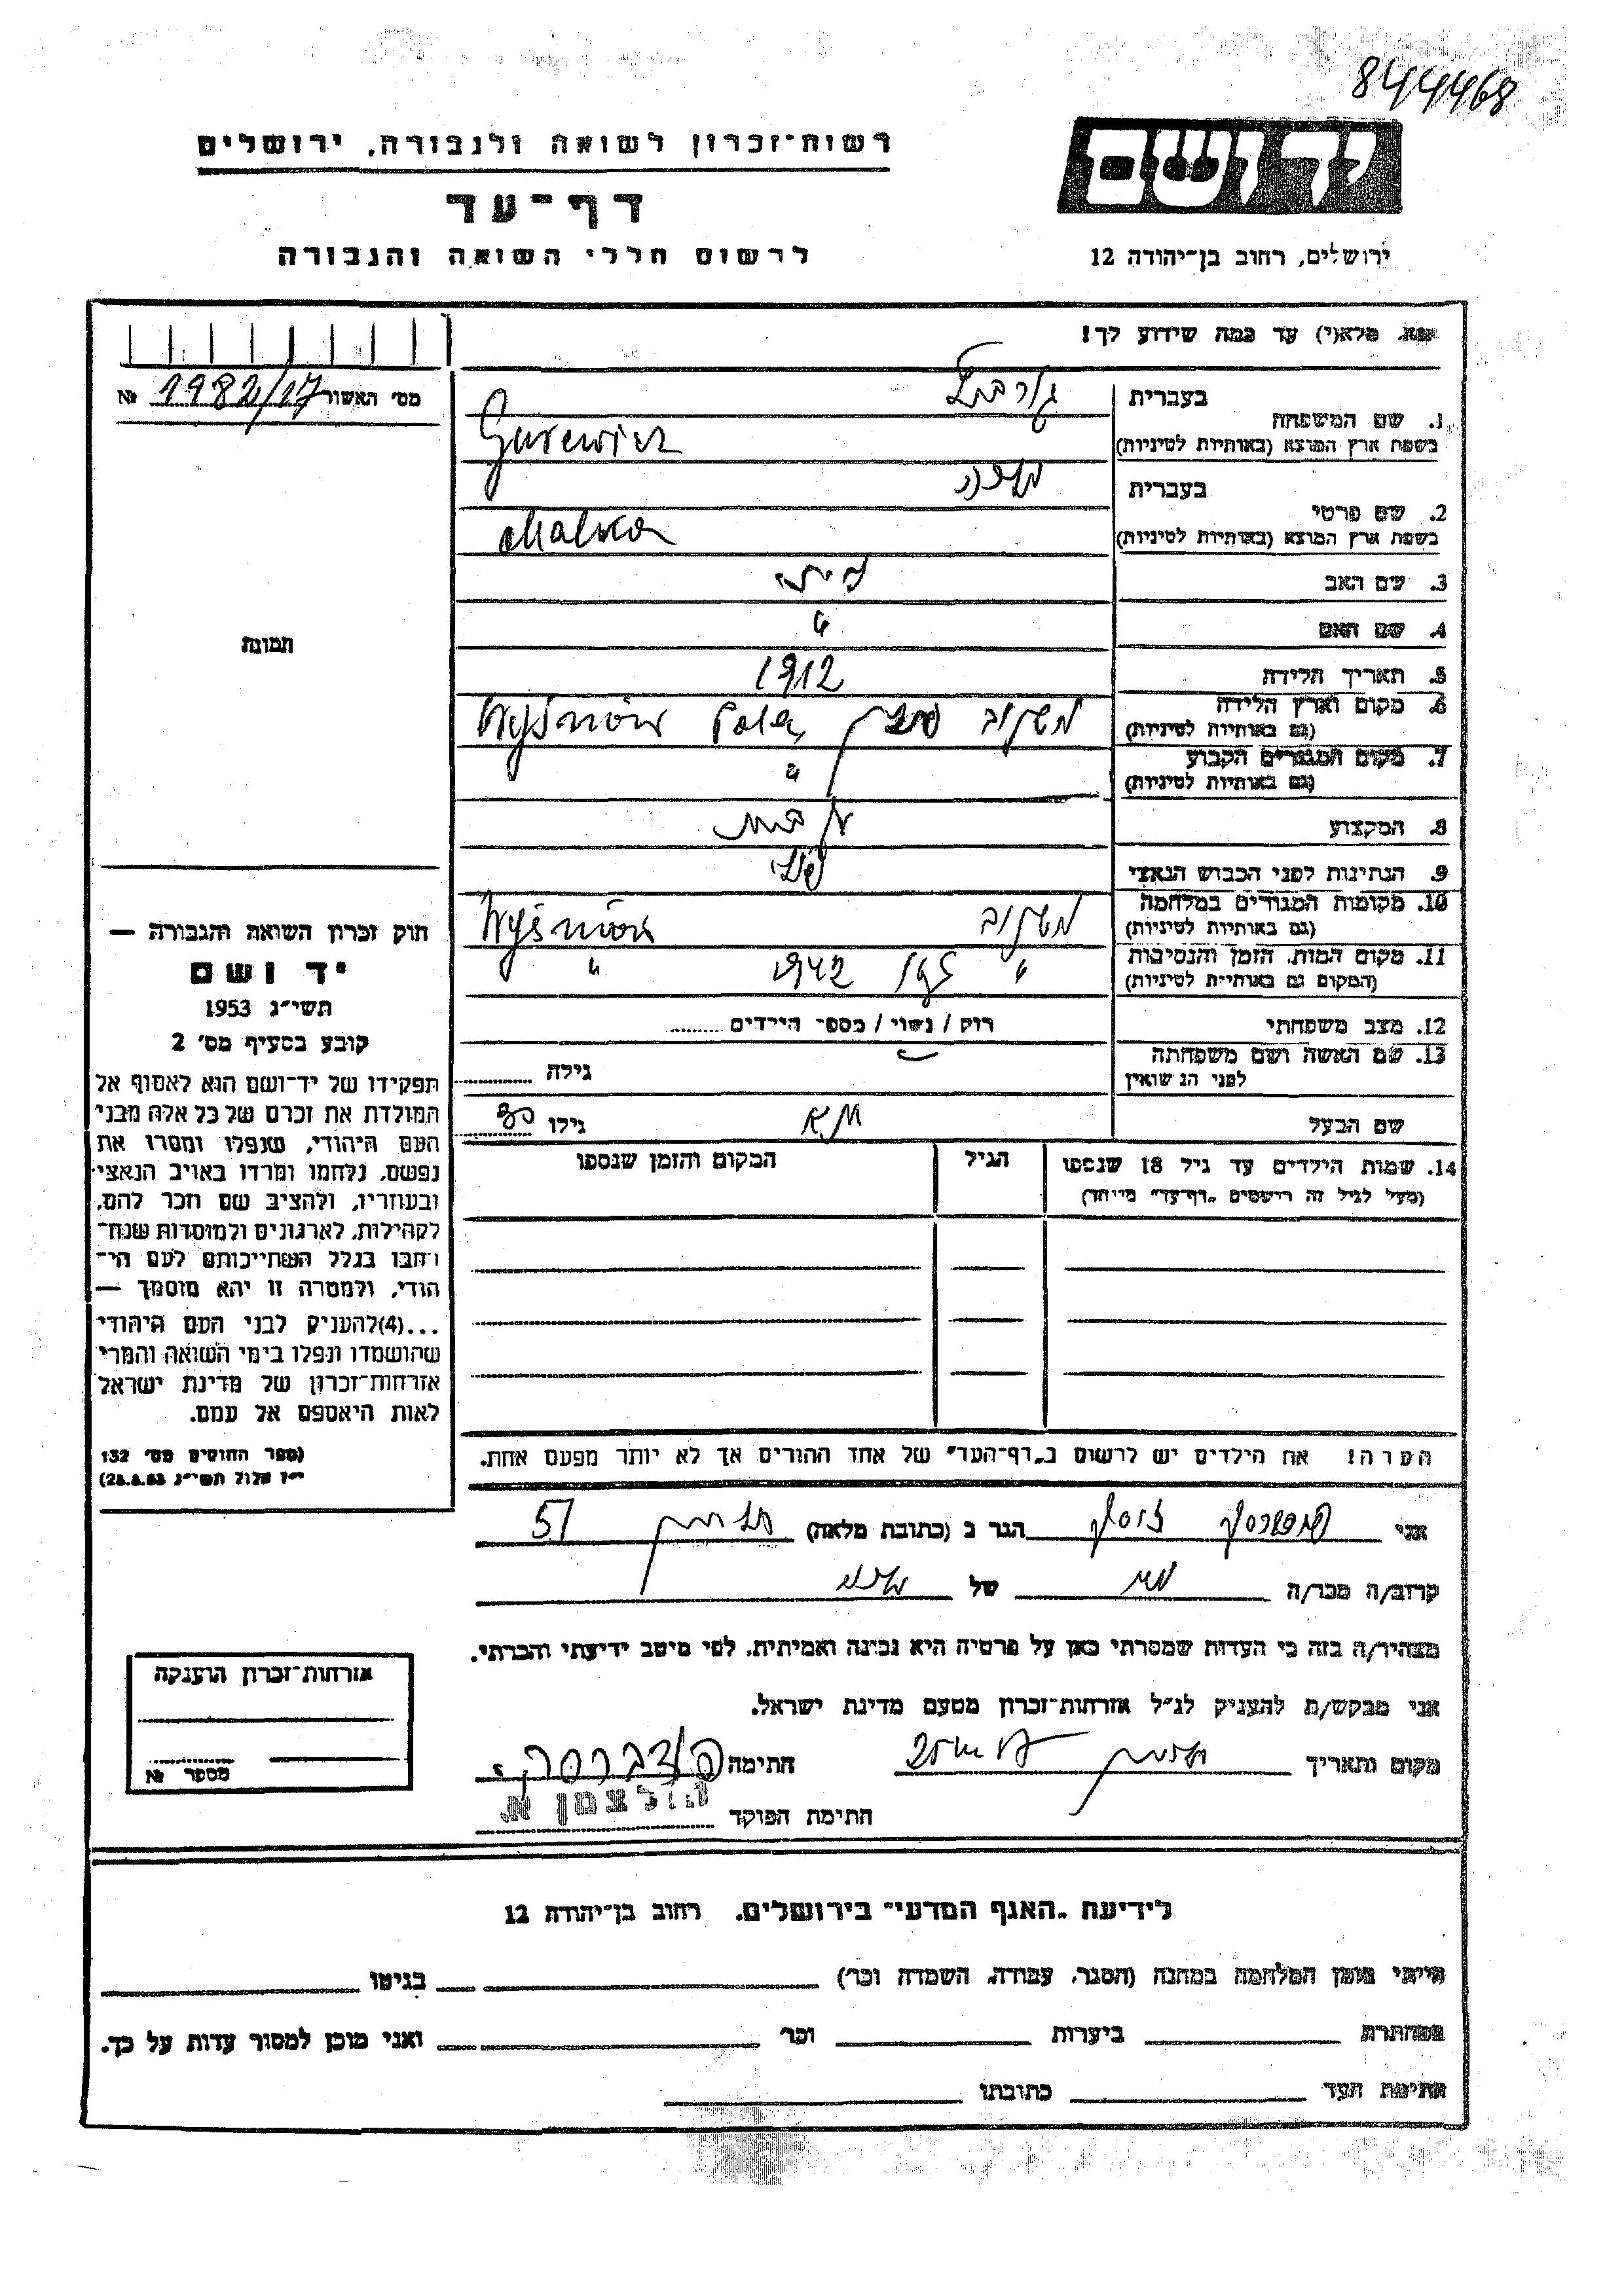 844468
יד ושם
רשות־זכרון לשואה ולגבורה, ירושלים
דף־עד
לרשום חללי השואה והגבורה
ירושלים, רחוב בן־יהודה 12
נא מלא(י) עד כמה שידוע לך!
מס׳ האשור 1982/17 №
1. שם המשפחה
בעברית
בשפת ארץ המוצא (באותיות לטיניות) Gurewicz
2. שם פרטי
בעברית מלכה
בשפת ארץ המוצא (באותיות לטיניות) Malka
3. שם האב
4. שם האם "
5. תאריך הלידה 1912
6. מקום וארץ הלידה
(גם באותיות לטיניות) Wyśnów
7. מקום המגורים הקבוע
(גם באותיות לטיניות) "
8. המקצוע
9. הנתינות לפני הכבוש הנאצי
10. מקומות המגורים במלחמה
(גם באותיות לטיניות) Wyśnów
11. מקום המות, הזמן והנסיבות
(המקום גם באותיות לטיניות) " 1942 "
12. מצב משפחתי רוק / נשוי / מספר הילדים
13. שם האשה ושם משפחתה
לפני הנשואין גילה
שם הבעל גילו 30
14. שמות הילדים עד גיל 18 שנספו הגיל המקום והזמן שנספו
(מעל לגיל זה רושמים "דף־עד" מיוחד)
הערה! את הילדים יש לרשום ב"דף־העד" של אחד ההורים אך לא יותר מפעם אחת.
תמונה
חוק זכרון השואה והגבורה —
יד ושם
תשי״ג 1953
קובע בסעיף מס׳ 2
תפקידו של יד־ושם הוא לאסוף אל
המולדת את זכרם של כל אלה מבני
העם היהודי, שנפלו ומסרו את
נפשם, נלחמו ומרדו באויב הנאצי
ובעוזריו, ולהציב שם וזכר להם,
לקהילות, לארגונים ולמוסדות שנח־
רבו בגלל השתייכותם לעם הי־
הודי, ולמטרה זו יהא מוסמך —
...(4)להעניק לבני העם היהודי
שהושמדו ונפלו בימי השואה והמרי
אזרחות־זכרון של מדינת ישראל
לאות היאספם אל עמם.
(ספר החוקים מס׳ 132
י״ז אלול תשי״ג 28.8.53)
אני הגר ב (כתובת מלאה) 51
קרוב/ה מכר/ה של
מצהיר/ה בזה כי העדות שמסרתי כאן על פרטיה היא נכונה ואמיתית, לפי מיטב ידיעתי והכרתי.
אני מבקש/ת להעניק לנ״ל אזרחות־זכרון מטעם מדינת ישראל.
מקום ותאריך חתימה
חתימת הפוקד הולצמן א.
אזרחות־זכרון הוענקה
מספר №
לידיעת "האגף המדעי" בירושלים, רחוב בן־יהודה 12
הייתי בזמן המלחמה במחנה (הסגר, עבודה, השמדה וכו׳) בגיטו
במחתרת ביערות וכו׳ ואני מוכן למסור עדות על כך.
חתימת העד כתובתו